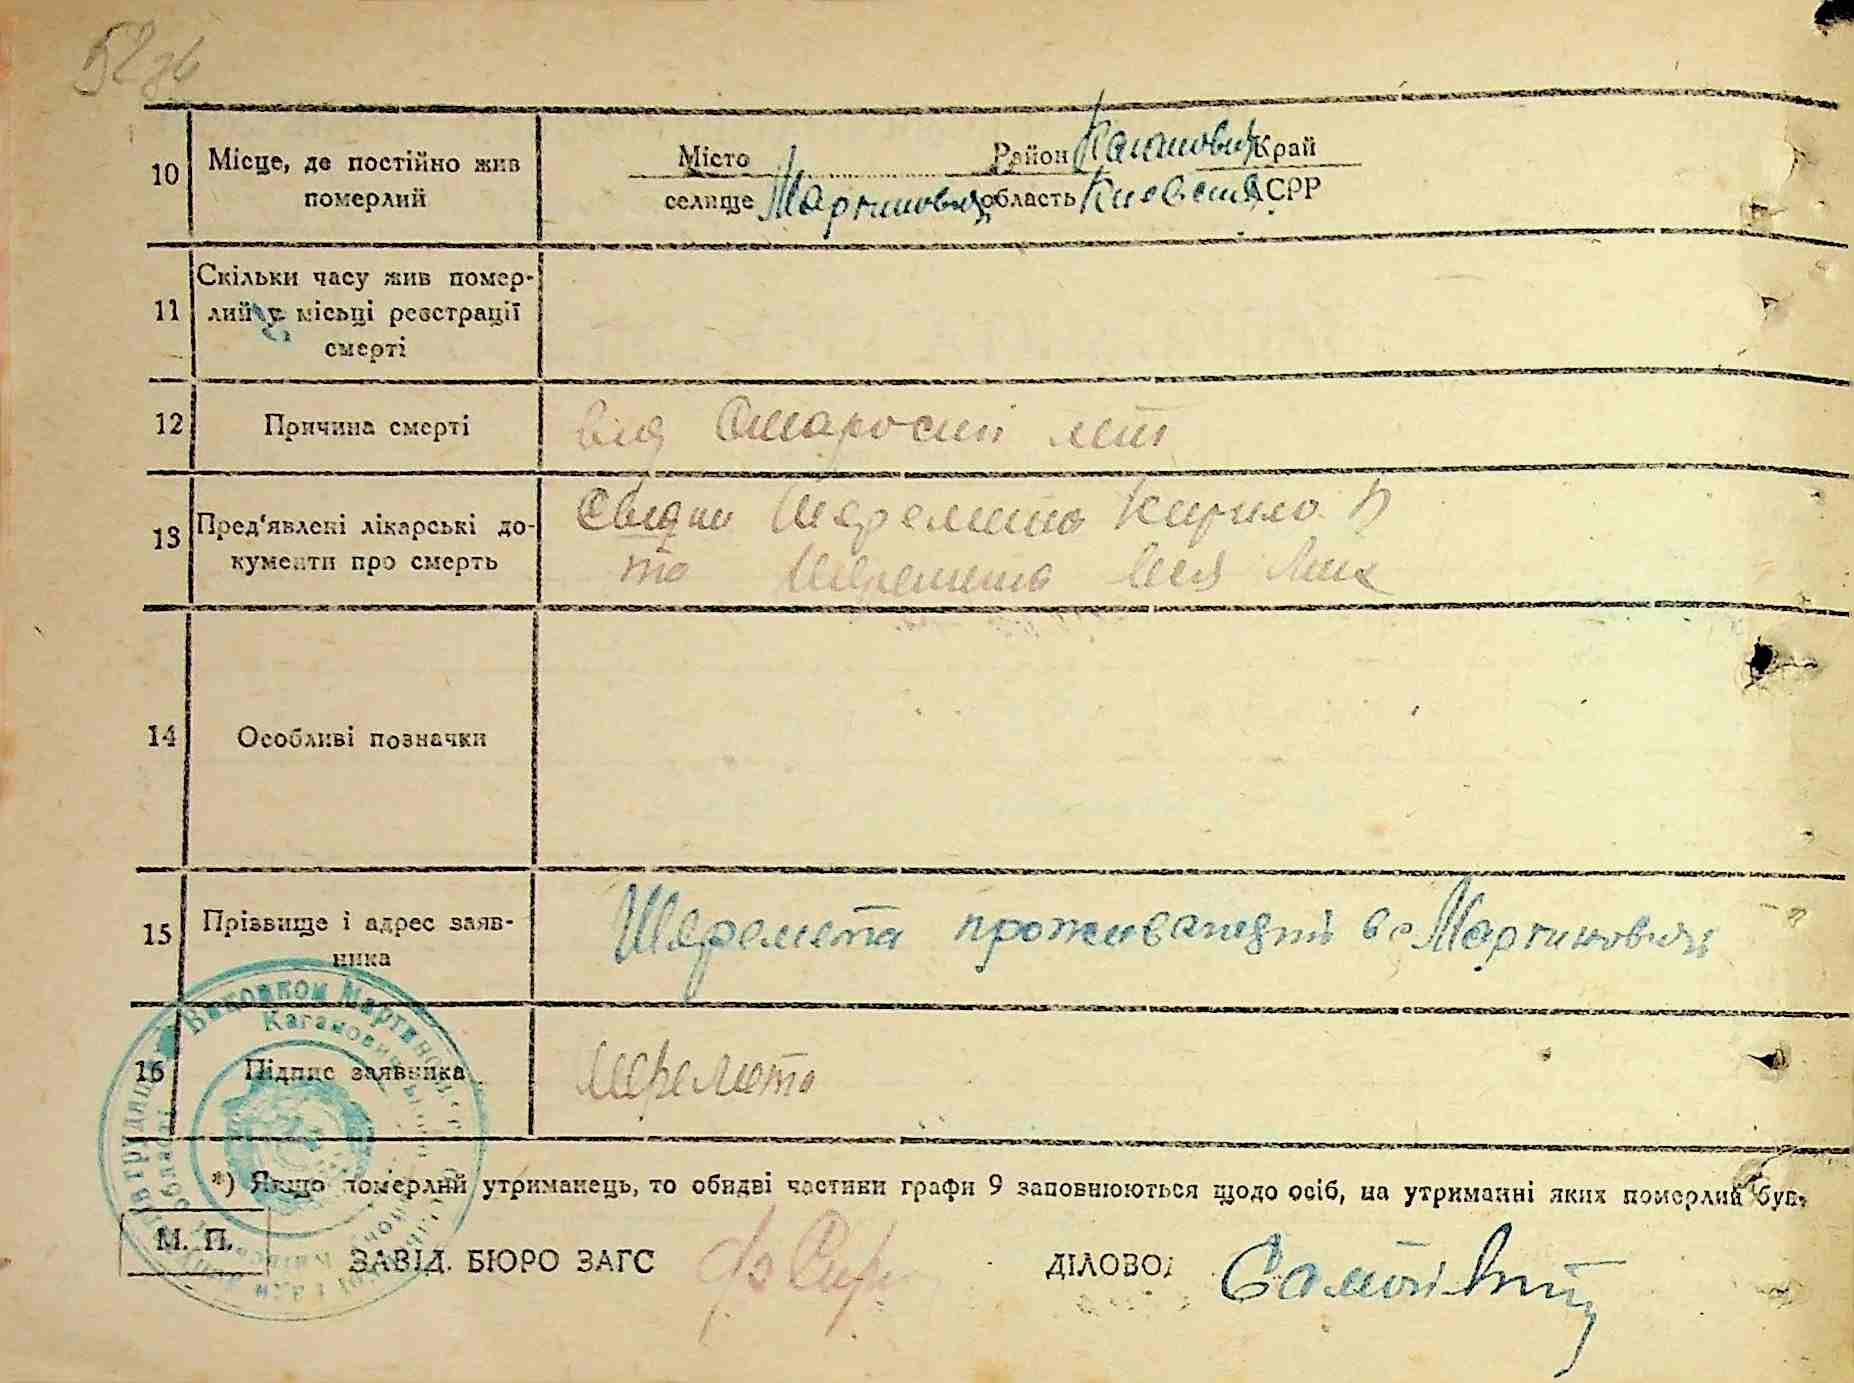 52
10 Місце, де постійно жив померлий
Місто Район Каганович Край
селище Мартиновичі область Киевська АСРР
11 Скільки часу жив померлий у місьці реєстрації смерті
12 Причина смерті
від старості літ
13 Пред‘явлені лікарські документи про смерть
Свідки Шеремета Кирило В
та Шеремета
14 Особливі позначки
15 Прізвище і адрес заявника
Шеремета проживающий в с Мартиновичі
16 Підпис заявника
Шеремета
*) Якщо померлий утриманець, то обидві частини графи 9 заповнюються щодо осіб, на утриманні яких померлий був.
М. П.
ЗАВІД. БЮРО ЗАГС
ДІЛОВОД